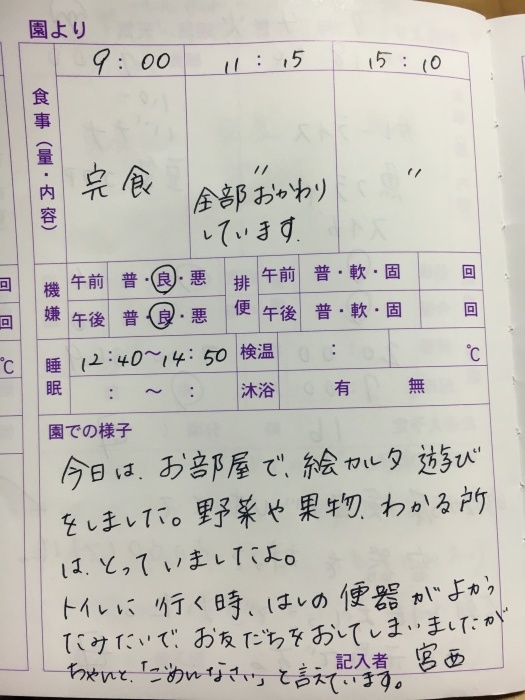 園より
9:00 11:15 15:10
食事(量・内容)
完食 〃 〃
全部おかわり
しています.
機嫌 午前 普・良・悪 排便 午前 普・軟・固 回
午後 普・良・悪 午後 普・軟・固 回
睡眠 12:40〜14:50 検温 : ℃
: 〜 : 沐浴 有 無
園での様子
今日は、お部屋で、絵カルタ遊び
をしました。野菜や果物、わかる所
は、とっていましたよ。
トイレに行く時、はしの便器がよかっ
たみたいで、お友だちをおしてしまいましたが
ちゃんと、「ごめんなさい」と言えています。
記入者 宮西
回
回
℃